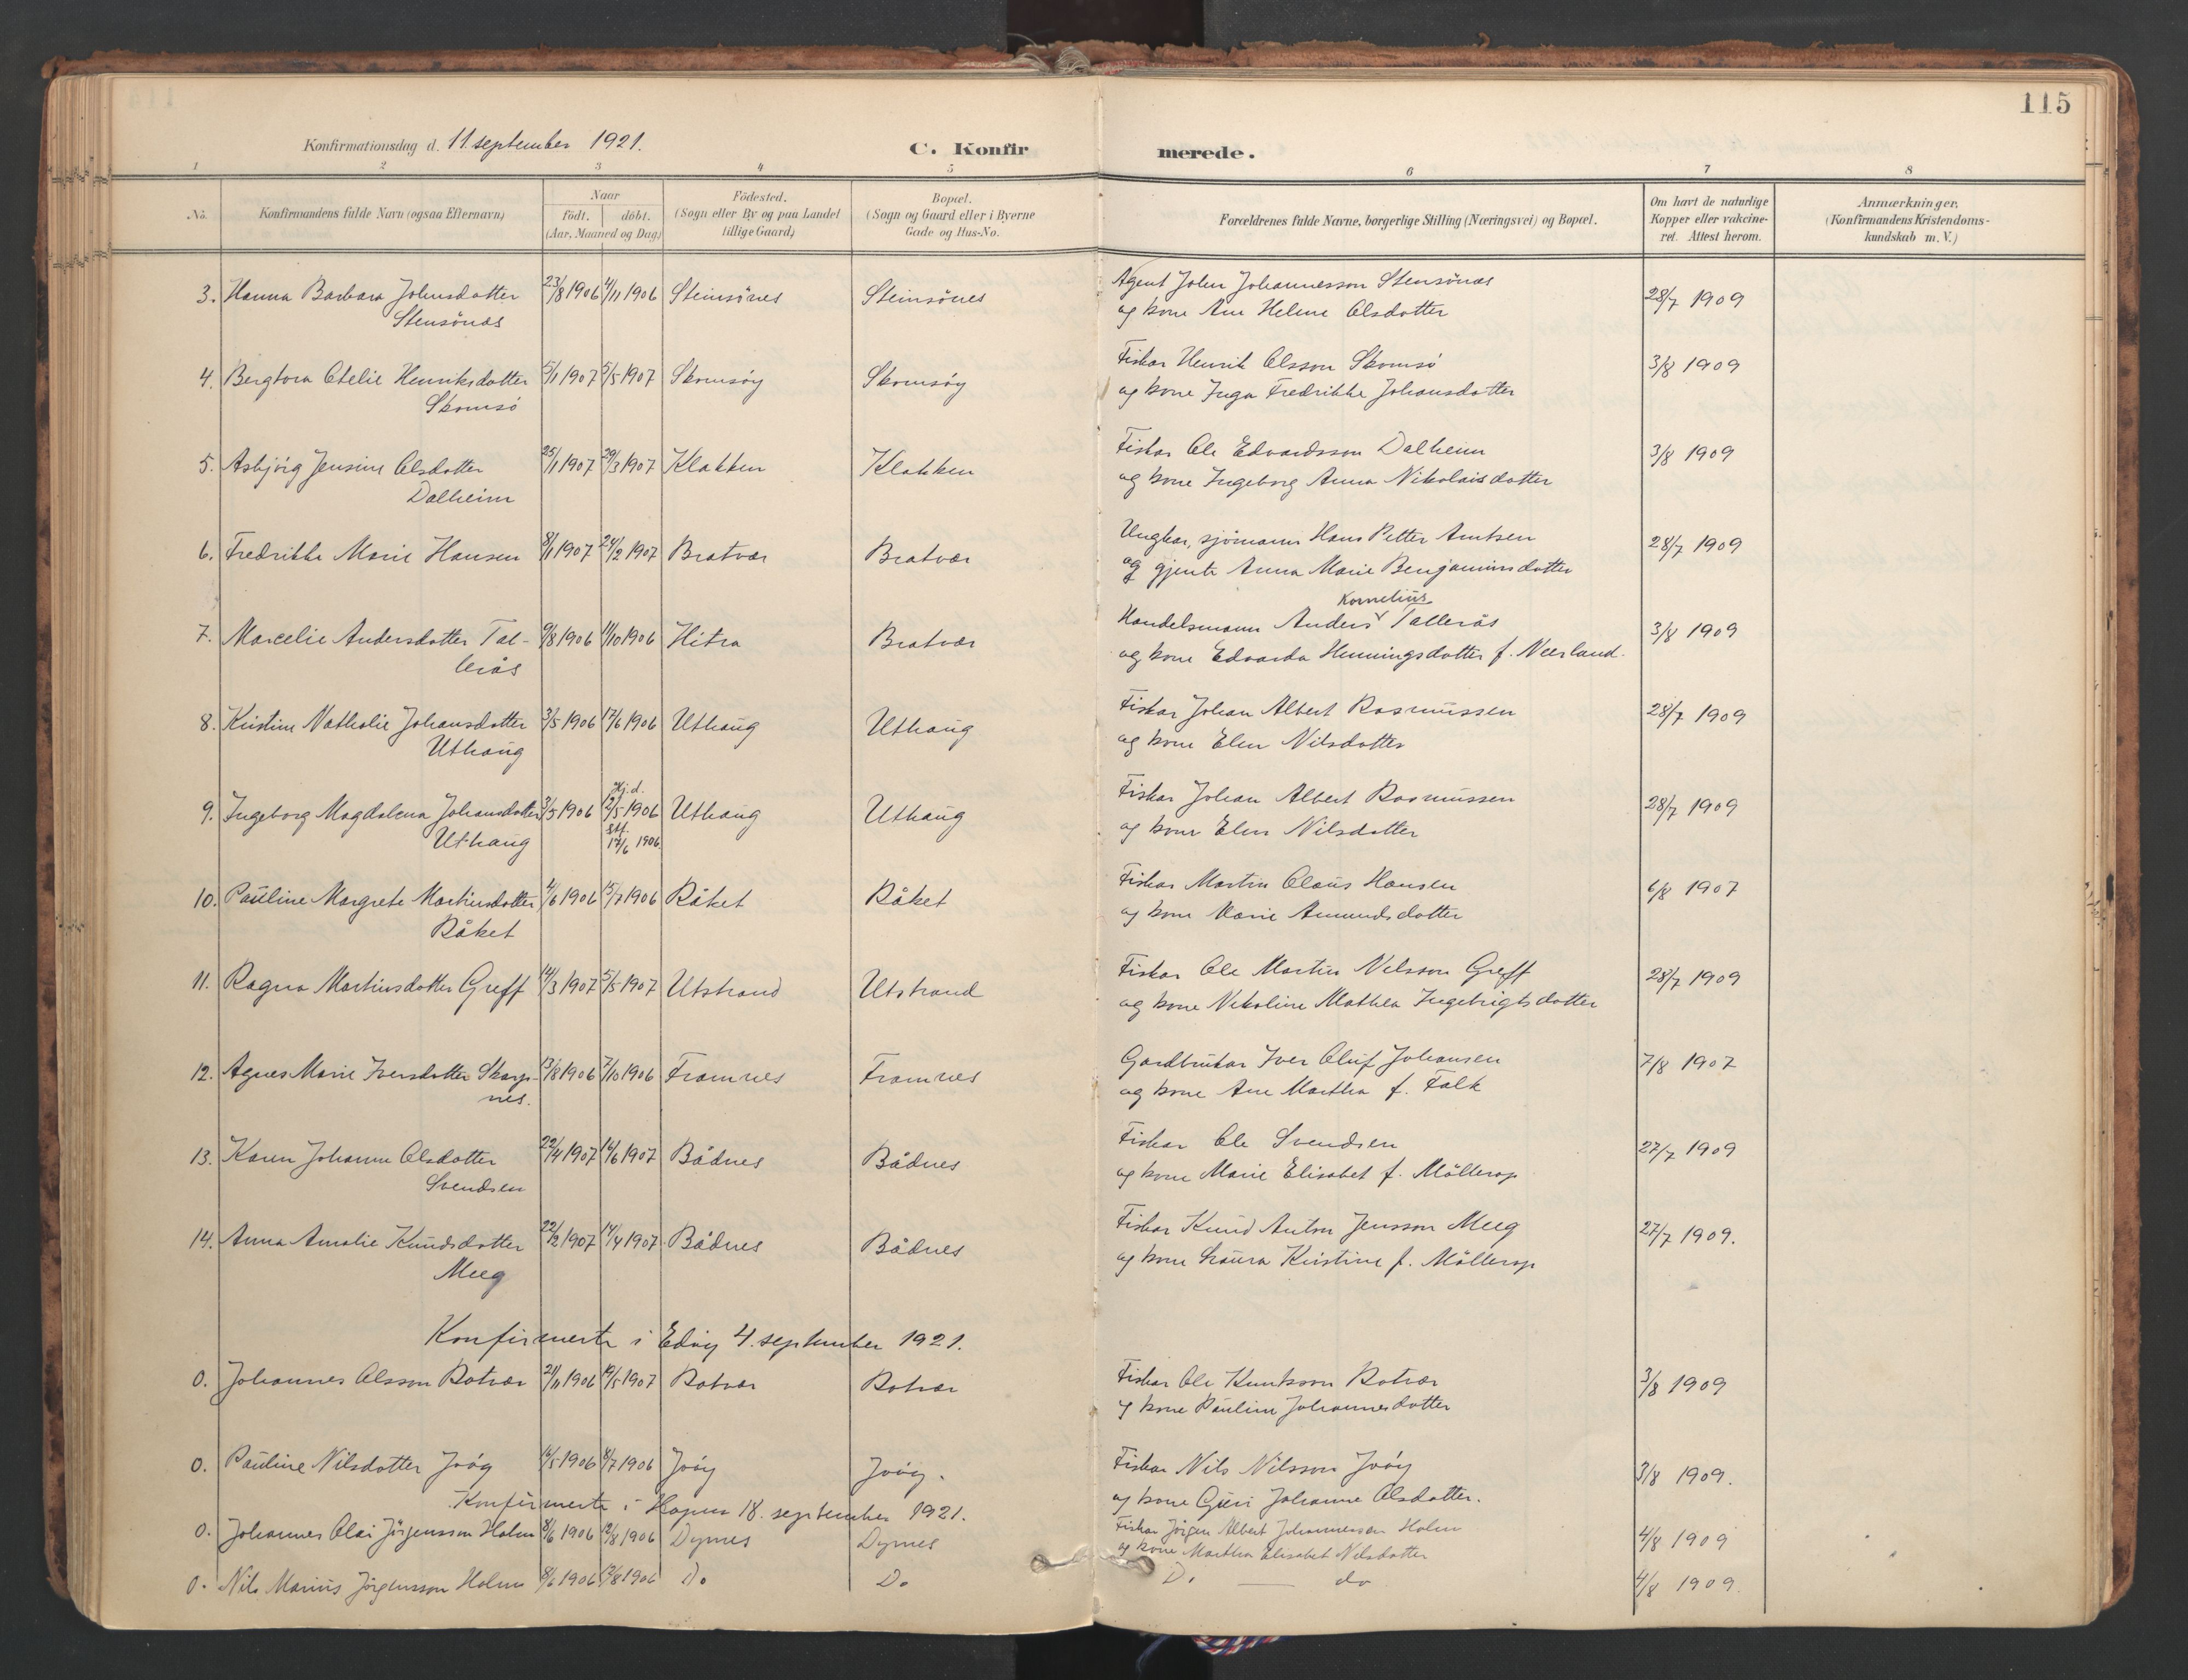 115
Konfirmationsdag d. 11. september 1921.
C. Konfirmerede.
1 2 3 4 5 6 7 8
No.
Konfirmandens fulde Navn (ogsaa Efternavn)
Naar
födt. döbt.
(Aar, Maaned og Dag)
Födested.
(Sogn eller By og paa Landet
tillige Gaard)
Bopæl.
(Sogn og Gaard eller i Byerne
Gade og Hus-No.
Forældrenes fulde Navne, borgerlige Stilling (Næringsvei) og Bopæl.
Om havt de naturlige
Kopper eller vakcine-
ret. Attest herom.
Anmærkninger.
(Konfirmandens Kristendoms-
kundskab m. V.)
3. Hanna Barbara Johnsdotter 23/8 1906 4/11 1906 Steinsönes Steinsönes Agent John Johannesson Stensönæs 28/7 1909
Stensönæs og kone Ane Helene Olsdotter
4. Bergtora Otelie Henriksdotter 5/1 1907 5/5 1907 Skomsöy Skomsöy Fiskar Henrik Olsson Skomsö 3/8 1909
Skomsö og kone Inga Fredrikke Johansdotter
5. Asbjörg Jensine Olsdotter 25/1 1907 29/3 1907 Klakken Klakken Fiskar Ole Edvardsson Dalheim 3/8 1909
Dalheim og kone Ingeborg Anna Nikolaisdotter
6. Fredrikke Marie Hansen 8/1 1907 24/2 1907 Bratvær Bratvær Ungkar, sjömann Hans Petter Arntsen 28/7 1909
og gjente Anna Marie Benjaminsdotter
Kornelius
7. Marcelie Andersdotter Tal- 9/8 1906 11/10 1906 Hitra Bratvær Handelsmann Anders Tallerås 3/8 1909
lerås og kone Edvarda Henningsdotter f. Neerland
8. Kristine Nathalie Johansdotter 3/5 1906 17/6 1906 Uthaug Uthaug Fiskar Johan Albert Rasmussen 28/7 1909
Uthaug og kone Elen Nilsdotter
Hj.d.
9. Ingeborg Magdalena Johansdotter 3/5 1906 12/5 1906 Uthaug Uthaug Fiskar Johan Albert Rasmussen 28/7 1909
Uthaug stf. 17/6 1906. og kone Elen Nilsdotter
10. Pauline Margrete Martinsdotter 4/6 1906 15/7 1906 Råket Råket Fiskar Martin Olaus Hansen 6/8 1907
Råket og kone Marie Amundsdotter
11. Ragna Martinsdotter Greff 14/3 1907 5/5 1907 Utstrand Utstrand Fiskar Ole Martin Nilsson Greff 28/7 1909
og kone Nikoline Mathea Ingebrigtsdotter
12. Agnes Marie Iversdotter Skarp- 13/8 1906 7/10 1906 Framnes Framnes Gardbrukar Iver Oluf Johansen 7/8 1907
nes. og kone Ane Martha f. Falk
13. Karen Johanne Olsdotter 22/4 1907 16/6 1907 Bådnes Bådnes Fiskar Ole Svendsen 27/7 1909
Svendsen og kone Marie Elisabet f. Möllerop
14. Anna Amalie Knudsdotter 22/2 1907 14/4 1907 Bådnes Bådnes Fiskar Knud Anton Jensson Meeg 27/7 1909.
Meeg og kone Laura Kristine f. Möllerop
Konfirmerte i Edöy 4. september 1921.
0. Johannes Olsson Rotvær 21/11 1906 19/5 1907 Rotvær Rotvær Fiskar Ole Knutsson Rotvær 3/8 1909
og kone Pauline Johannesdotter
0. Pauline Nilsdotter Jvöy 16/5 1906 8/7 1906 Jvöy Jvöy. Fiskar Nils Nilsson Jvöy 3/8 1909.
og kone Guri Johanne Olsdotter.
Konfirmerte i Hopen 18. september 1921.
0. Johannes Olai Jörgensson Holm 8/6 1906 12/8 1906 Dyrnes Dyrnes Fiskar Jörgen Albert Johannessen Holm 4/8 1909
og kone Martha Elisabet Nilsdotter
0. Nils Marius Jörgensson Holm 8/6 1906 12/8 1906 Do Do Do — do 4/8 1909.